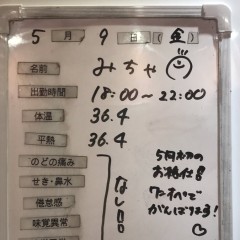 5 月 9 日 (金)
名前 みちゃ
出勤時間 18:00〜22:00
体温 36.4
平熱 36.4
のどの痛み
せき・鼻水
倦怠感
味覚異常
なし
5月初の
お給仕
ワンオペで
がんばります!